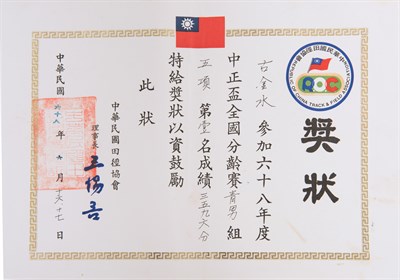 中華民國田徑協會
ROC
REPUBLIC OF CHINA TRACK & FIELD ASSOCIATION
獎狀
古金水 參加六十八年度
中正盃全國分齡賽青男組
五項 第壹名成績三五九六分
特給獎狀以資鼓勵
此狀
中華民國田徑協會
理事長 王
中華民國六十八年九月十六.十七日